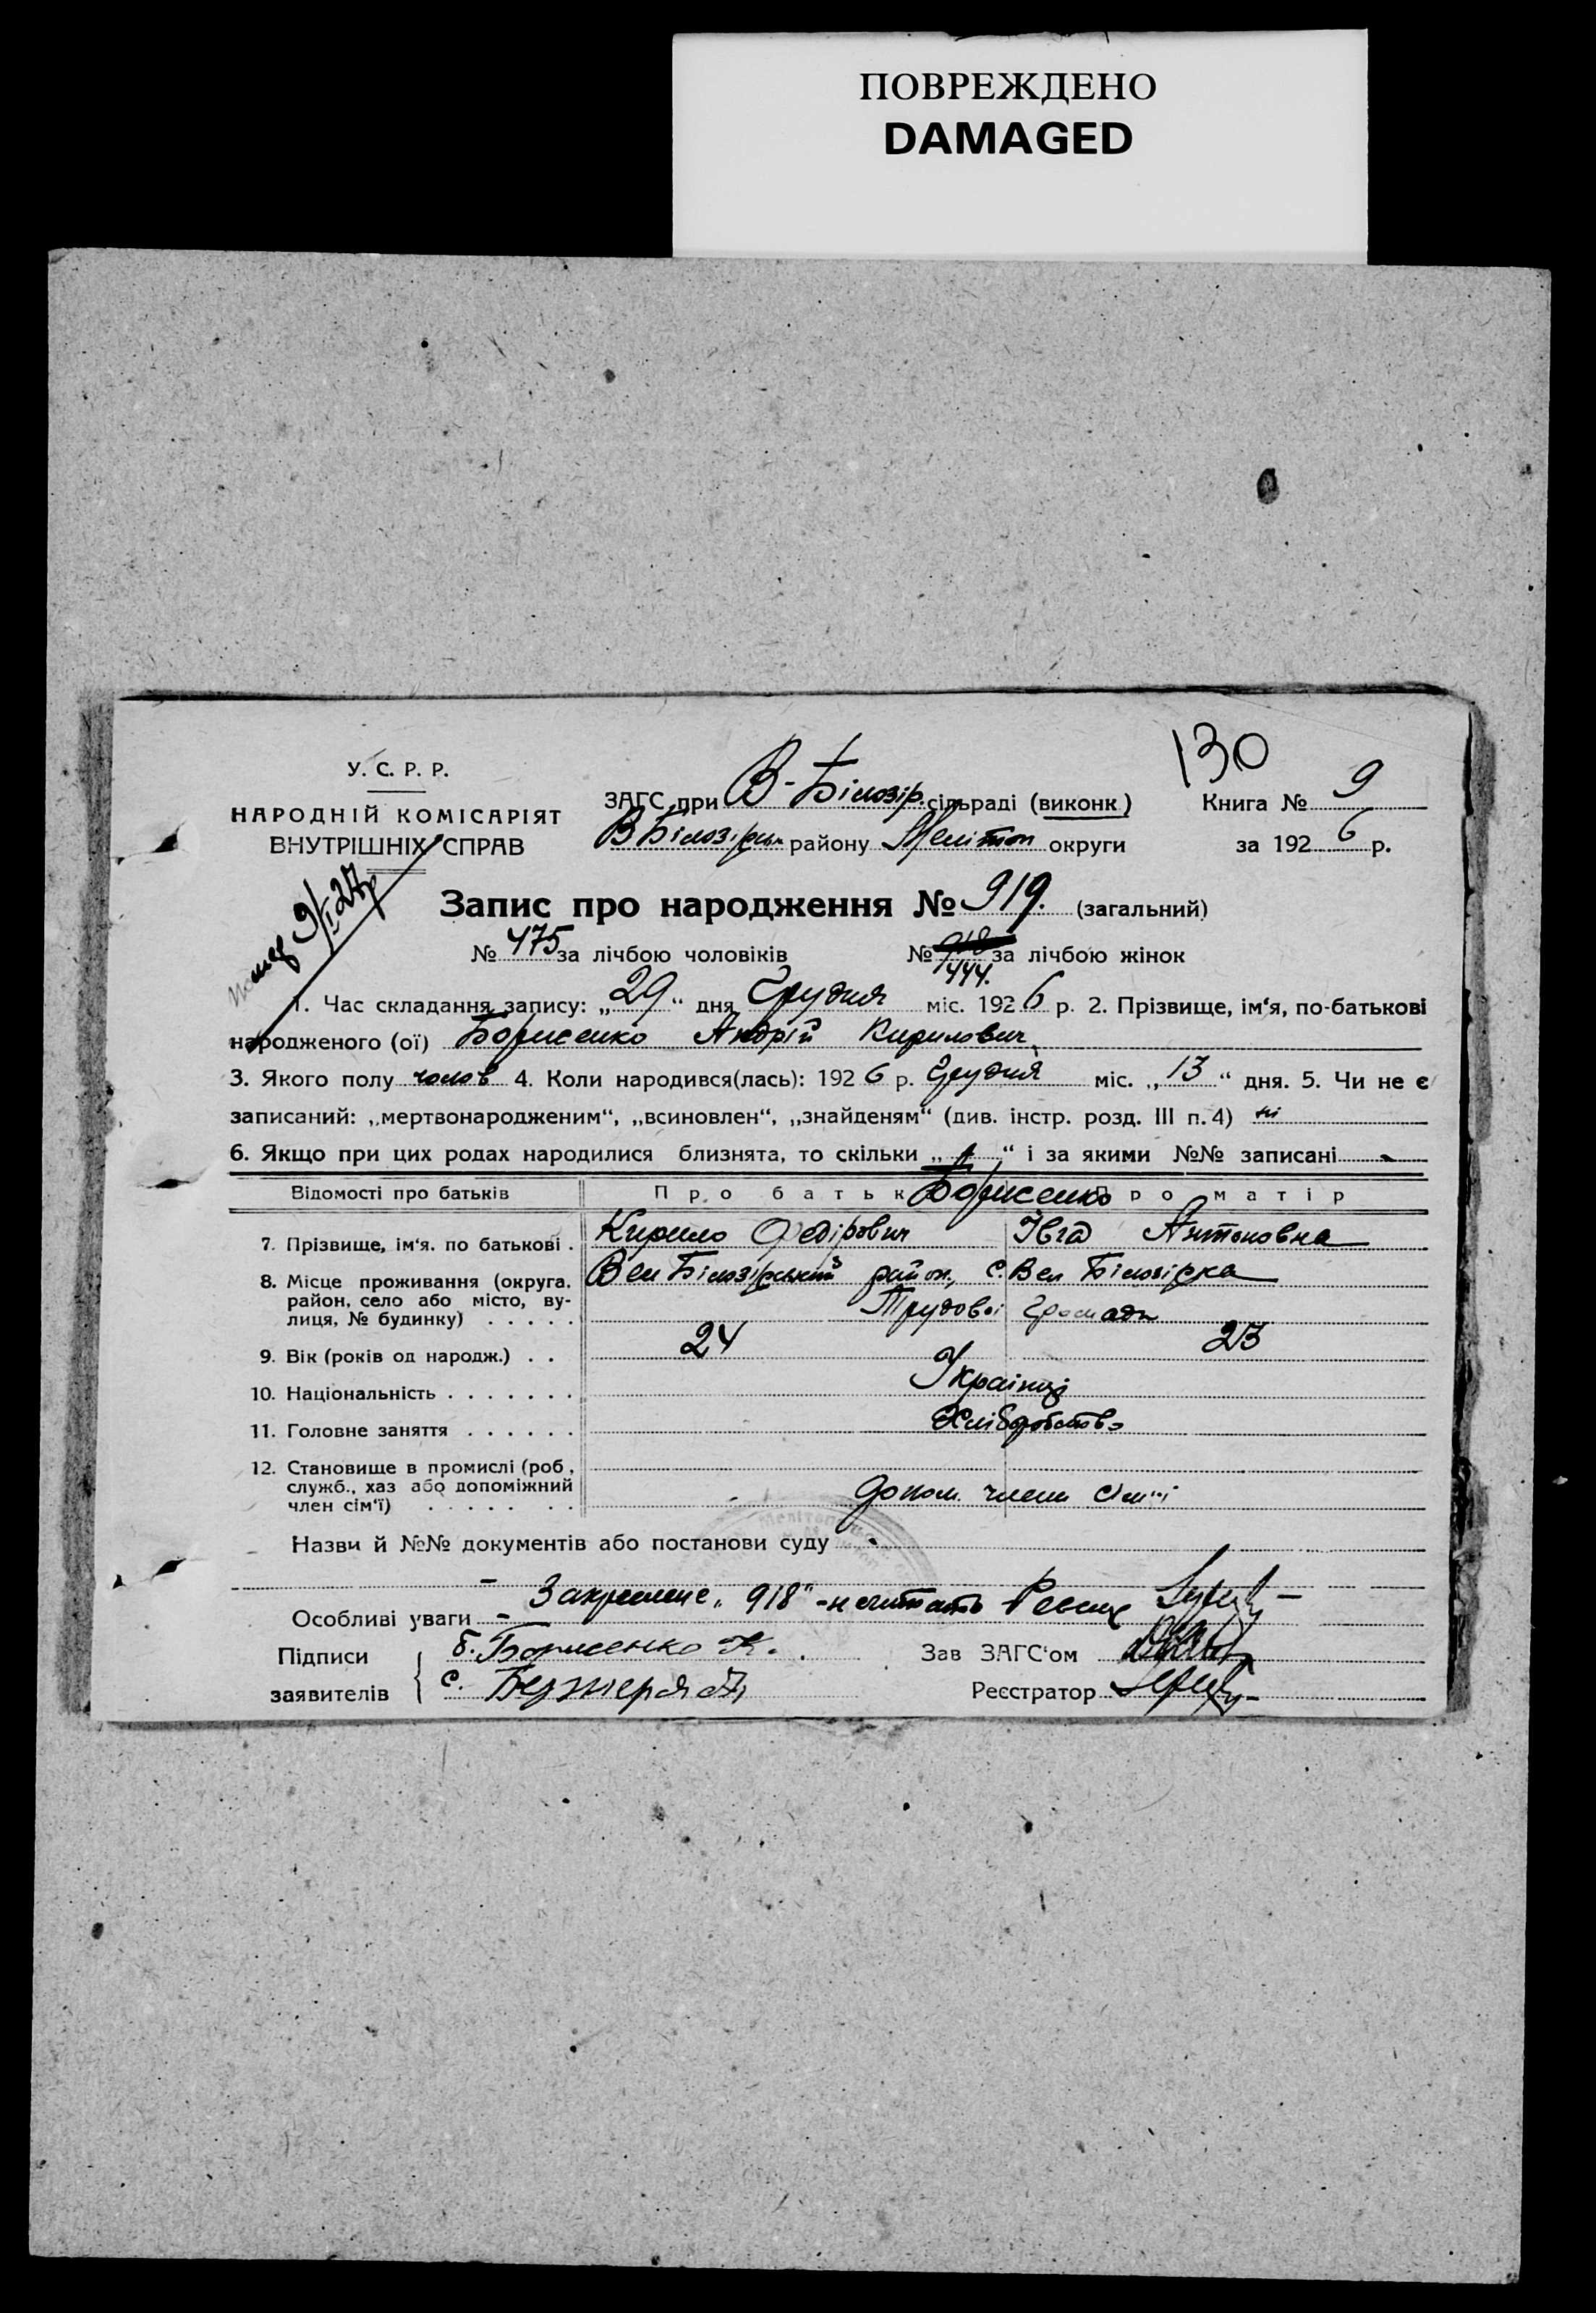 ПОВРЕЖДЕНО
DAMAGED
130
У. С. Р. Р.
НАРОДНІЙ КОМІСАРІЯТ
ВНУТРІШНІХ СПРАВ
ЗАГС при В-Білозір. сільраді (виконк)
Книга № 9
ВБілозірськ району Мелітоп округи
за 1926 р.
9/I 27р
Запис про народження № 919. (загальний)
№ 475 за лічбою чоловіків № 918 за лічбою жінок
444.
1. Час складання запису: „29“ дня Грудня міс. 1926 р. 2. Прізвище, ім‘я, по-батькові
народженого (ої) Борисенко Андрій Кирилович
3. Якого полу чолов 4. Коли народився(лась): 1926 р. Грудня міс. „13“ дня. 5. Чи не є
записаний: „мертвонародженим“, „всиновлен“, „знайденям“ (див. інстр. розд. III п. 4) ні
6. Якщо при цих родах народилися близнята, то скільки „ “ і за якими №№ записані -
Відомості про батьків
Про батьк Борисенко Про матір
7. Прізвище, ім‘я. по батькові . Кирило Федірович Івга Антоновна
8. Місце проживання (округа, район, село або місто, вулиця, № будинку) . . . . . Вел Білозірський район, с. Вел Білозірка
Трудової Громади
9. Вік (років од народж.) . . 24 23
10. Національність . . . . . . . Українці
11. Головне заняття . . . . . . Хліборобство
12. Становище в промислі (роб, служб., хаз або допоміжний член сім‘ї) . . . . . . . допом. члени сім'ї
Назви й №№ документів або постанови суду -
Особливі уваги - Закреслене „918“ - не читать
Підписи б. Борисенко К. Зав ЗАГС‘ом
заявителів с. Реєстратор